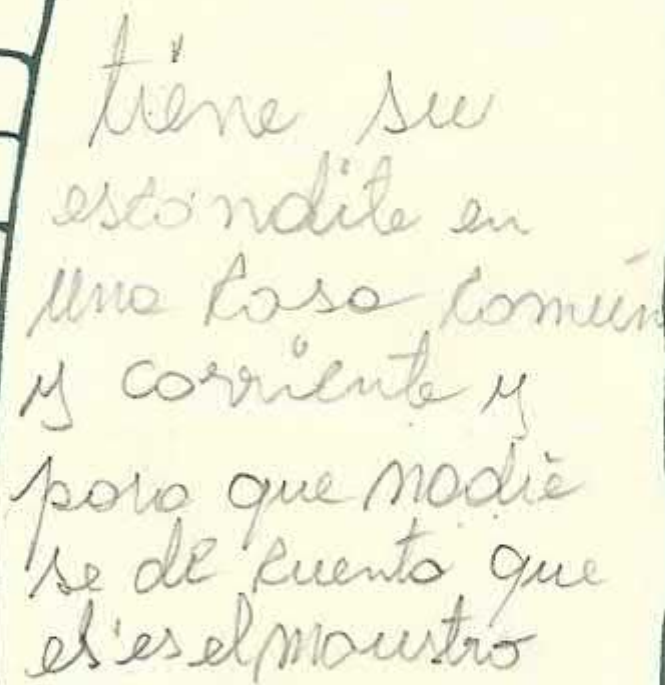 tiene su
escondite en
una casa común
y corriente y
para que nadie
se de cuenta que
el es el moustro